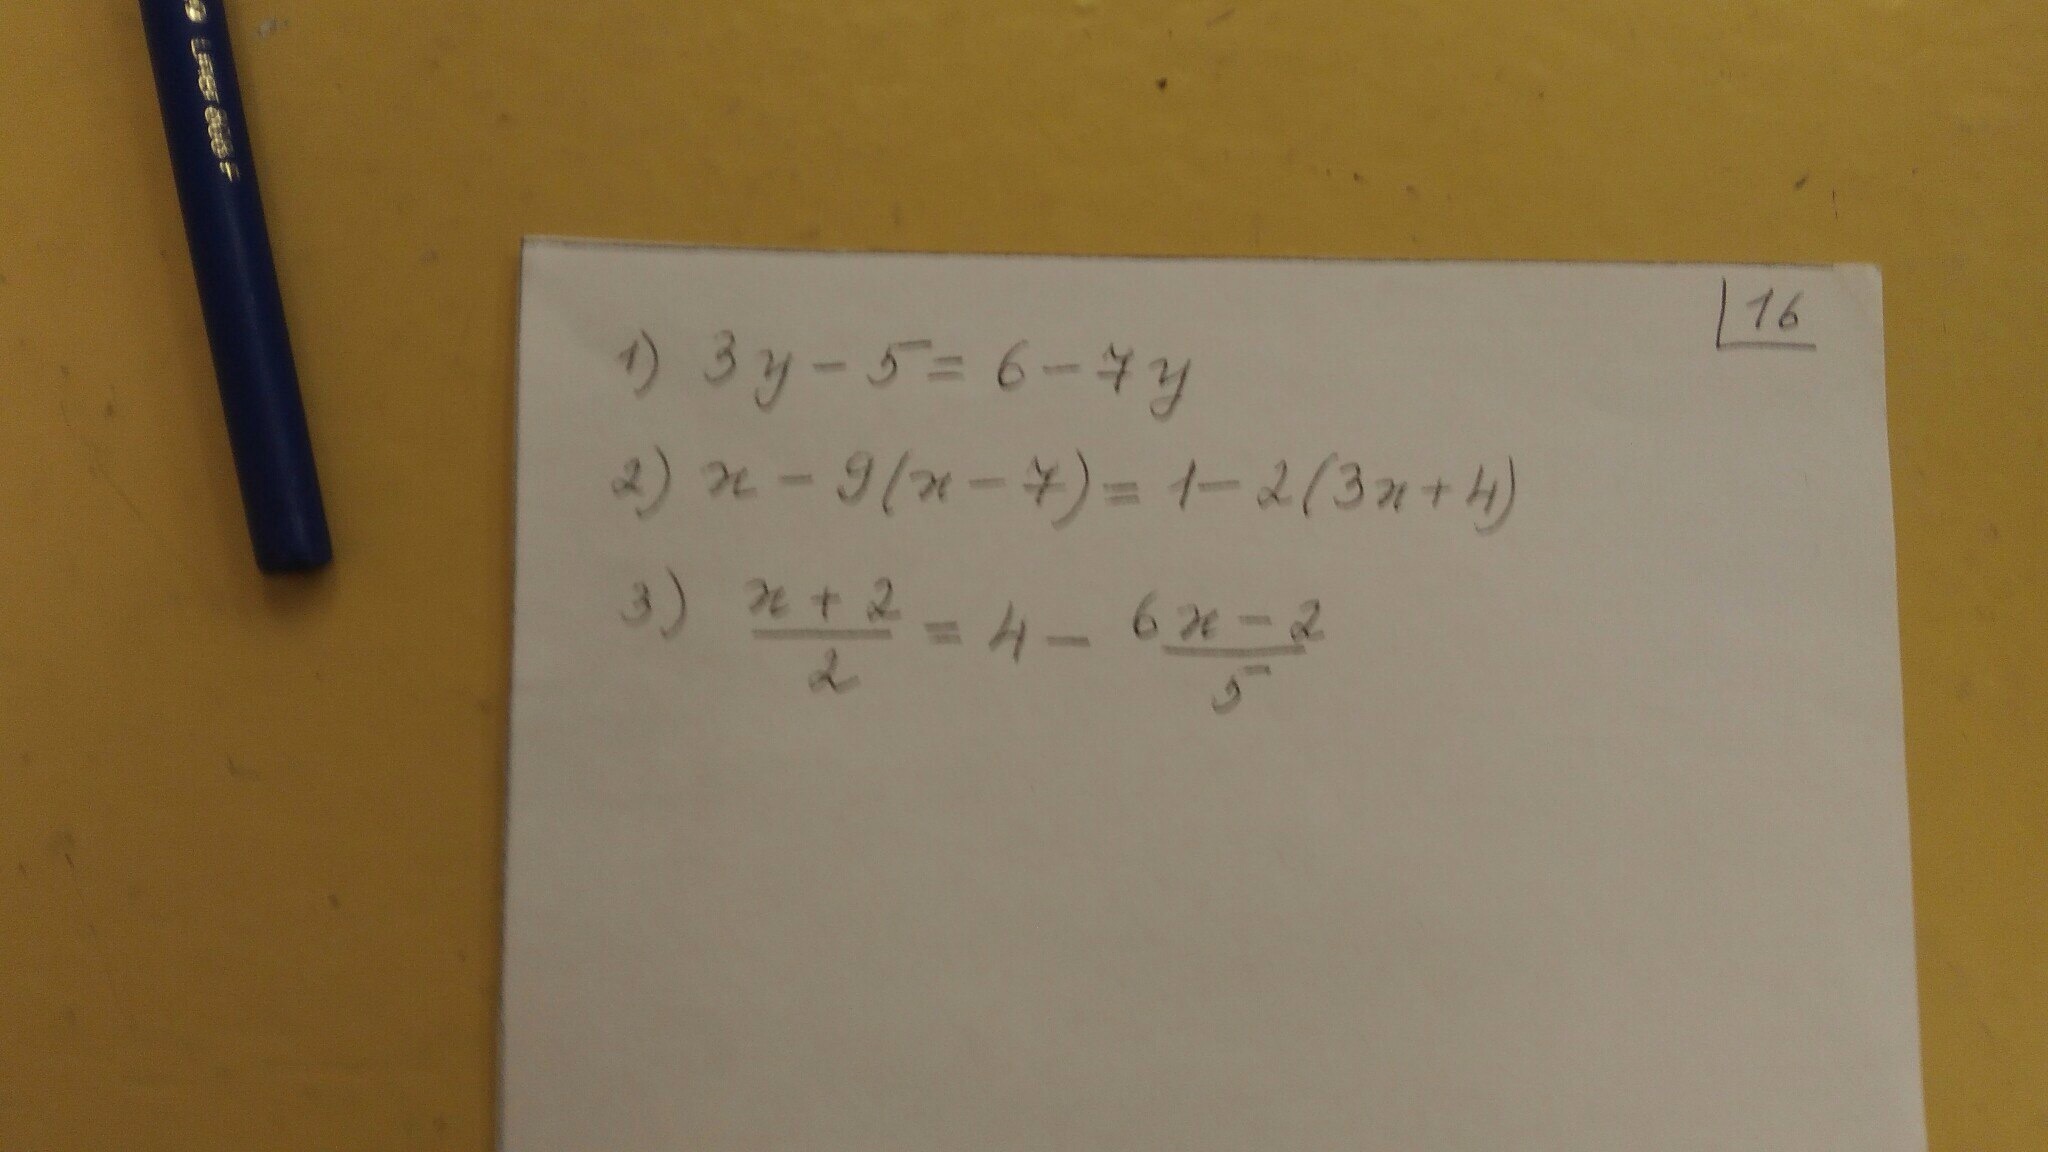 16
1) 3y - 5 = 6 - 7y
2) x - 9(x - 7) = 1 - 2(3x + 4)
3) x + 2 / 2 = 4 - 6x - 2 / 5